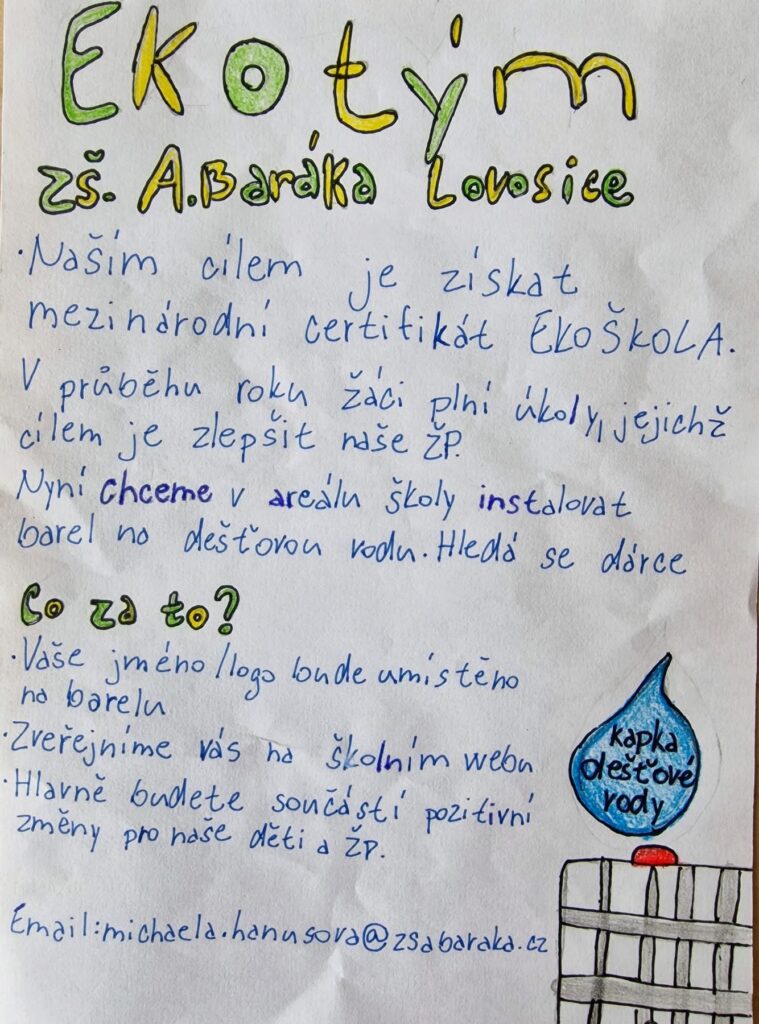 Ekotým
zš. A.Baráka Lovosice
·Naším cílem je získat
mezinárodní certifikát EKOŠKOLA.
V průběhu roku žáci plní úkoly, jejichž
cílem je zlepšit naše ŽP.
Nyní chceme v areálu školy instalovat
barel na dešťovou vodu. Hledá se dárce
Co za to?
·Vaše jméno/logo bude umístěno
na barelu
·Zveřejníme vás na školním webu
·Hlavně budete součástí pozitivní
změny pro naše děti a ŽP.
kapka
dešťové
vody
Email:michaela.hanusova@zsabaraka.cz